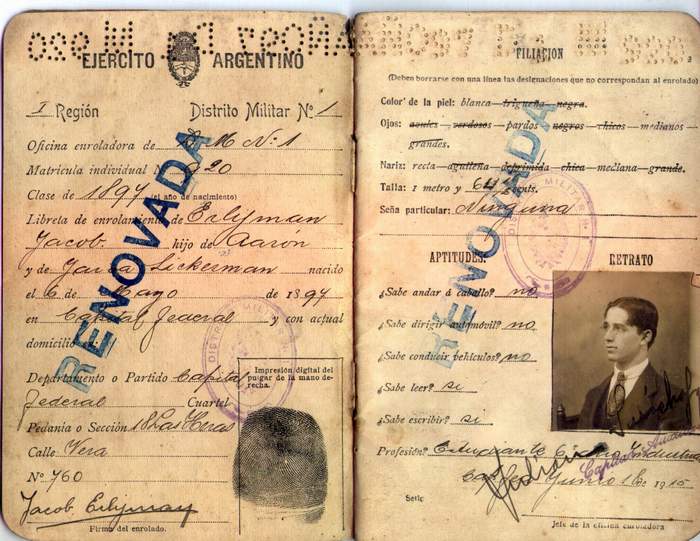 EJERCITO ARGENTINO
I Región Distrito Militar Nº 1
Oficina enroladora de D. M. Nº 1
Matrícula individual Nº 520
Clase de 1897 (el año de nacimiento)
Libreta de enrolamiento de Erlyman
Jacob hijo de Aarón
y de Lickerman nacido
el 6 de Mayo de 1897
en Capital Federal y con actual
domicilio en:
Departamento o Partido Capital
Federal Cuartel
Pedanía o Sección 18 Las Heras
Calle Vera
Nº 760
Impresión digital del pulgar de la mano derecha.
Jacob Erlyman
Firma del enrolado.
RENOVADA
DISTRITO MILITAR
2
FILIACION
(Deben borrarse con una línea las designaciones que no correspondan al enrolado)
Color de la piel: blanca trigueña negra.
Ojos: azules verdosos pardos negros chicos medianos
grandes.
Nariz: recta aguileña deprimida chica mediana grande.
Talla: 1 metro y 64 cents.
Seña particular: Ninguna
RENOVADA
DISTRITO MILITAR
APTITUDES:
RETRATO
¿Sabe andar á caballo? no
¿Sabe dirigir automóvil? no
¿Sabe conducir vehículos? no
¿Sabe leer? si
¿Sabe escribir? si
Profesión? Estudiante
Junio 1º de 1915
Jefe de la oficina enroladora